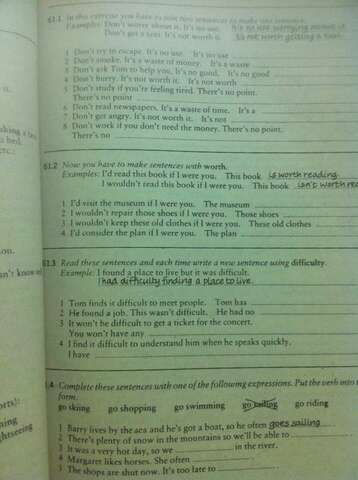 61.1 In this exercise you have to join two sentences to make one sentence.
Examples: Don't worry about it. It's no use. It's no use worrying about it.
Don't get a taxi. It's not worth it. It's not worth getting a taxi.
1 Don't try to escape. It's no use. It's no use
2 Don't smoke. It's a waste of money. It's a waste
3 Don't ask Tom to help you. It's no good. It's no good
4 Don't hurry. It's not worth it. It's not worth
5 Don't study if you're feeling tired. There's no point.
There's no point
6 Don't read newspapers. It's a waste of time. It's a
7 Don't get angry. It's not worth it. It's not
8 Don't work if you don't need the money. There's no point.
There's no
61.2 Now you have to make sentences with worth.
Examples: I'd read this book if I were you. This book is worth reading.
I wouldn't read this book if I were you. This book isn't worth rea
1 I'd visit the museum if I were you. The museum
2 I wouldn't repair those shoes if I were you. Those shoes
3 I wouldn't keep these old clothes if I were you. These old clothes
4 I'd consider the plan if I were you. The plan
61.3 Read these sentences and each time write a new sentence using difficulty.
Example: I found a place to live but it was difficult.
I had difficulty finding a place to live.
1 Tom finds it difficult to meet people. Tom has
2 He found a job. This wasn't difficult. He had no
3 It won't be difficult to get a ticket for the concert.
You won't have any
4 I find it difficult to understand him when he speaks quickly.
I have
.4 Complete these sentences with one of the following expressions. Put the verb into t
form.
go skiing go shopping go swimming go sailing go riding
1 Barry lives by the sea and he's got a boat, so he often goes sailing.
2 There's plenty of snow in the mountains so we'll be able to
3 It was a very hot day, so we in the river.
4 Margaret likes horses. She often
5 The shops are shut now. It's too late to